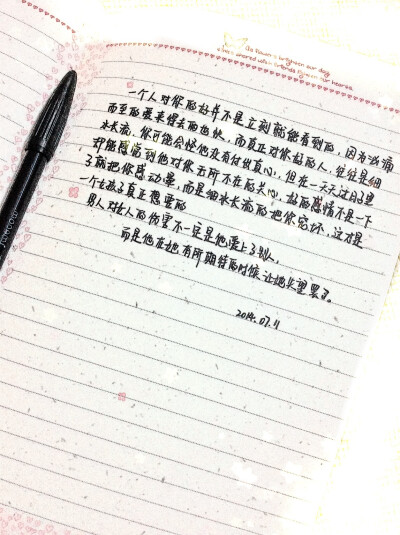 一个人对你的好并不是立刻就能看到的，因为汹涌
而至的爱来得去的也快，而真正对你好的人，往往是细
水长流，你可能会怪他没有付出真心，但在一天天过日子里
却能感觉到他对你无所不在的关心，好的感情不是一下
子就把你感动晕，而是细水长流的把你宠坏，这才是
一个女孩子真正想要的
男人对女人的伤害不一定是他爱上了别人，
而是他在她有所期待的时候让她失望罢了。
2014.07.11